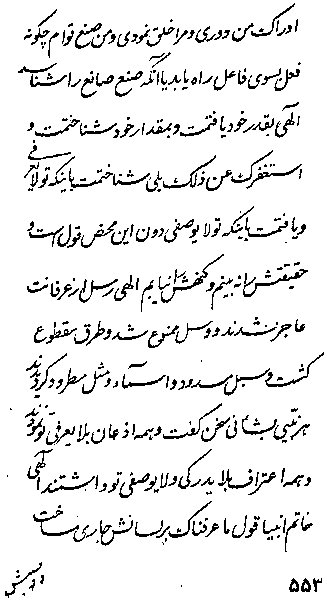 ادراک من دوری و مرا خلق نمودی و من صنع توام چگونه
فعل بسوی فاعل راه یابد یا آنکه صنع صانع را شناسد
الهی بقدر خود یافتمت و بمقدار خود شناختمت و
استغفرک عن ذلک بلی شناختمت باینکه تو لا تعرفی
و یافتمت باینکه تو لا یوصفی دون این محض قول است و
حقیقتش را نه بینم و کنهش را نیابم الهی رسل از عرفانت
عاجز شدند و وسل ممنوع شد و طرق مقطوع
گشت و سبل مسدود و اسماء و مثل مطرود گردیدند
هر نبیی بشأنی سخن گفت و همه اذعان بلا یعرفی تو نمودند
و همه اعتراف بلا یدرکی و لا یوصفی تو داشتند الهی
خاتم انبیا قول ما عرفناک بر لسانش جاری ساخت
۵۵۳